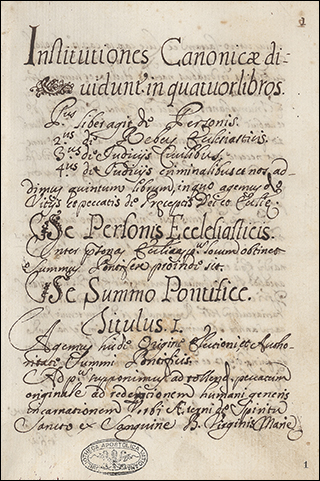 1
Institutiones Canonicæ di-
vidunt' in quatuor libros.
P.us liber agit de Personis.
2.us de Rebus Ecclesiasticis.
3.us de Judicijs Civilibus.
4.us de Judicijs criminalibus ac nos ad-
dimus quintum librum, in quo agemus de
Vitijs
De Personis Ecclesiasticis.
Inter personas Ecclesiae locum obtinet
Summus Pontifex proinde sit.
De Summo Pontifice.
Titulus 1.
Agemus hic de Origine Electione et Autho-
ritate Summi Pontificis.
ad tollend. peccatum
originale ad redemptionem humani generis
incarnationem Verbi Æterni de Spiritu
Sancto ex Sanguine B. Virginis Mariæ
1